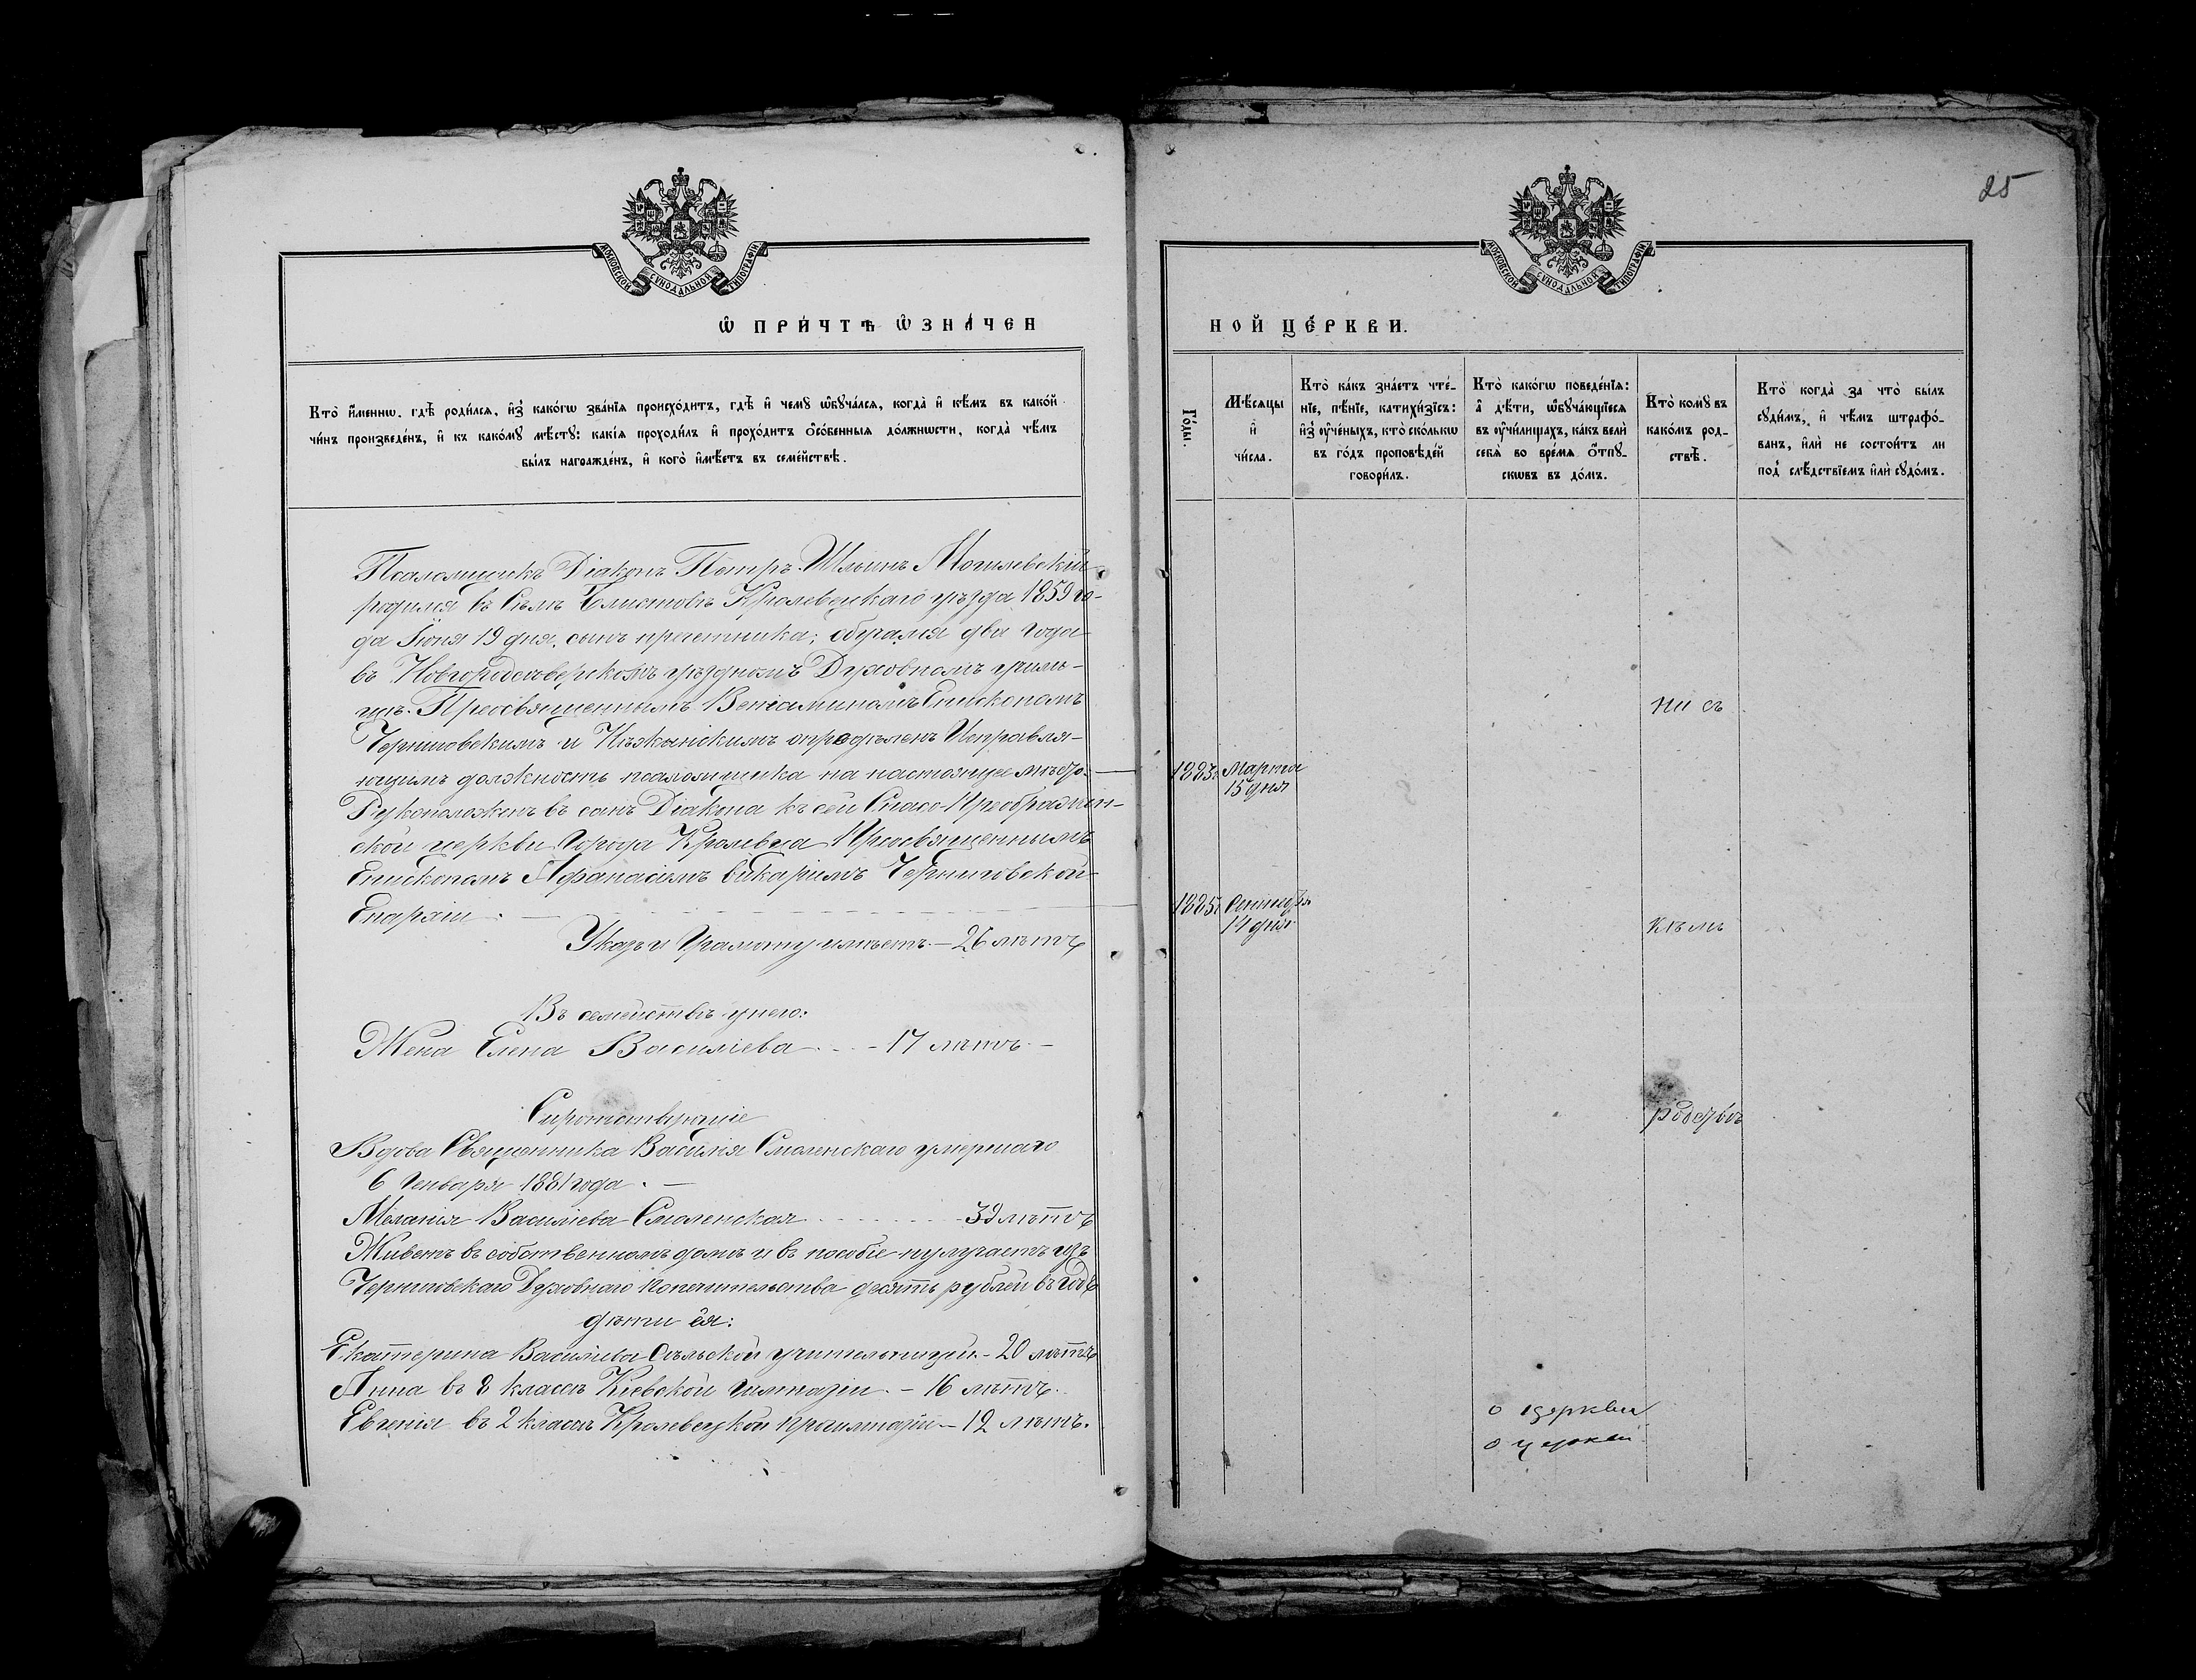 МОСКОВСКОЙ СѴНОДАЛЬНОЙ ТИПОГРАФІИ
Ѡ ПРИ́ЧТѢ Ѡ҆ЗНА́ЧЕН
Кто̀ и҆́меннѡ. гдѣ̀ роди́лсѧ, и҆з̾ како́гѡ зва́нїѧ происхо́дитъ, гдѣ̀ и҆ чемꙋ̀ ѡ҆бꙋча́лсѧ, когда̀ и҆ кѣ́мъ въ како́й
чи́нъ произведе́нъ, и҆ къ како́мꙋ мѣ́стꙋ: какі́ѧ проходи́лъ и҆ прохо́дитъ ѻ҆со́бенныѧ до́лжнѡсти, когда̀ чѣ́мъ
бы́лъ награжде́нъ, и҆ кого̀ и҆мѣ́етъ въ семе́йствѣ.
Псаломщикъ Діаконъ Петръ Ильинъ Могилевскій
родился въ селѣ Клистовѣ Кролевецкаго уѣзда 1859 го-
да Іюня 19 дня, сынъ причетника; обучался два года
въ Новгородсѣверскомъ уѣздномъ Духовномъ учили-
щѣ. Преосвященнымъ Веніаминомъ Епископомъ
Черниговскимъ и Нѣжинскимъ опредѣленъ Исправля-
ющимъ должность псаломщика на настоящее мѣсто.
Рукоположенъ въ санъ Діакона къ сей Спасо-Преображен-
ской церкви города Кролевца Преосвященнымъ
Епископомъ Афанасіемъ Викаріемъ Черниговской
Епархіи. —
Указъ и Грамоту имѣетъ. — 26 лѣтъ
Въ семействѣ у него:
Жена Елена Василіева - 17 лѣтъ. —
Сиротствующіе
Вдова Священника Василія Смоленскаго умершаго
6 Генваря 1881 года. —
Меланія Василіева Смоленская - 39 лѣтъ
Живетъ въ собственномъ домѣ и въ пособіе получаетъ изъ
Черниговскаго Духовнаго Попечительства десять рублей въ годъ
дѣти ея:
Екатерина Василіева Сельской учительницей - 20 лѣтъ
Анна въ 8 классѣ Кіевской Гимназіи. — 16 лѣтъ.
Евгенія въ 2 классѣ Кролевецкой прогимназіи — 12 лѣтъ.
25
МОСКОВСКОЙ СѴНОДАЛЬНОЙ ТИПОГРАФІИ
НОЙ ЦЕ́РКВИ.
Го́ды.
Мѣ́сѧцы
и҆
чи́сла.
Кто̀ ка́къ зна́етъ чте́-
нїе, пѣ́нїе, катихи́зїсъ:
и҆з̾ ᲂу҆че́ныхъ, кто̀ ско́лькѡ
въ го́дъ проповѣ́дей
говори́лъ.
Кто̀ како́гѡ поведе́нїѧ:
а҆ дѣ́ти, ѡ҆бꙋча́ющїесѧ
въ ᲂу҆чи́лищахъ, ка́къ велѝ
себѧ̀ во вре́мѧ ѻ҆́тпꙋ-
скѡвъ въ до́мъ.
Кто̀ комꙋ̀ въ
како́мъ род-
ствѣ̀.
Кто̀ когда̀ за что̀ бы́лъ
сꙋди́мъ, и҆ чѣ́мъ штрафо́-
ванъ, и҆лѝ не состои́тъ ли
под̾ слѣ́дствїемъ и҆лѝ сꙋдо́мъ.
ни съ
1883 г. Марта
15 дня
1885 г. Сентября
14 дня
кѣмъ
родствѣ
о церкви
о церкви